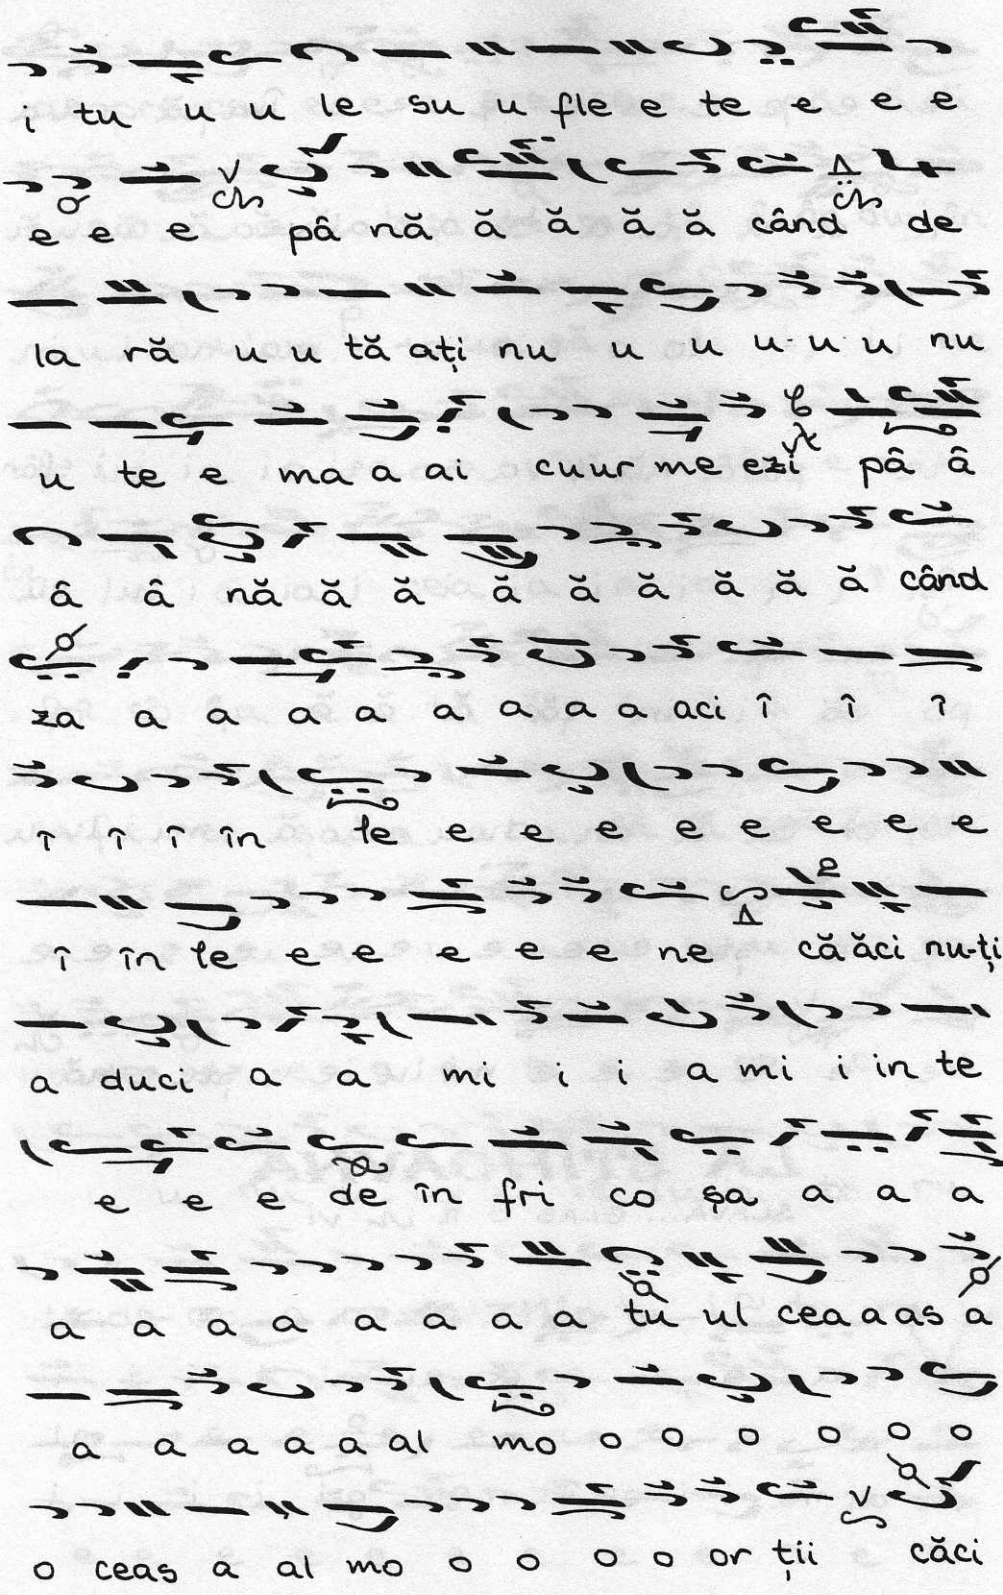 i tu u u le su u fle e te e e e
e e e pâ nă ă ă ă ă ă când de
la ră u u tă ați nu u u u u u nu
u te e ma a ai cuur me ezi pâ â
â â nă ă ă ă ă ă ă ă ă când
za a a a a a a a a aci î î î
î î î în le e e e e e e e e
î în le e e e e e e ne că ăci nu-ți
a duci a a mi i i a mi i in te
e e e de în fri co șa a a a
a a a a a a a a tu ul cea a as a
a a a a a al mo o o o o o o
o ceas a al mo o o o o or ții căci